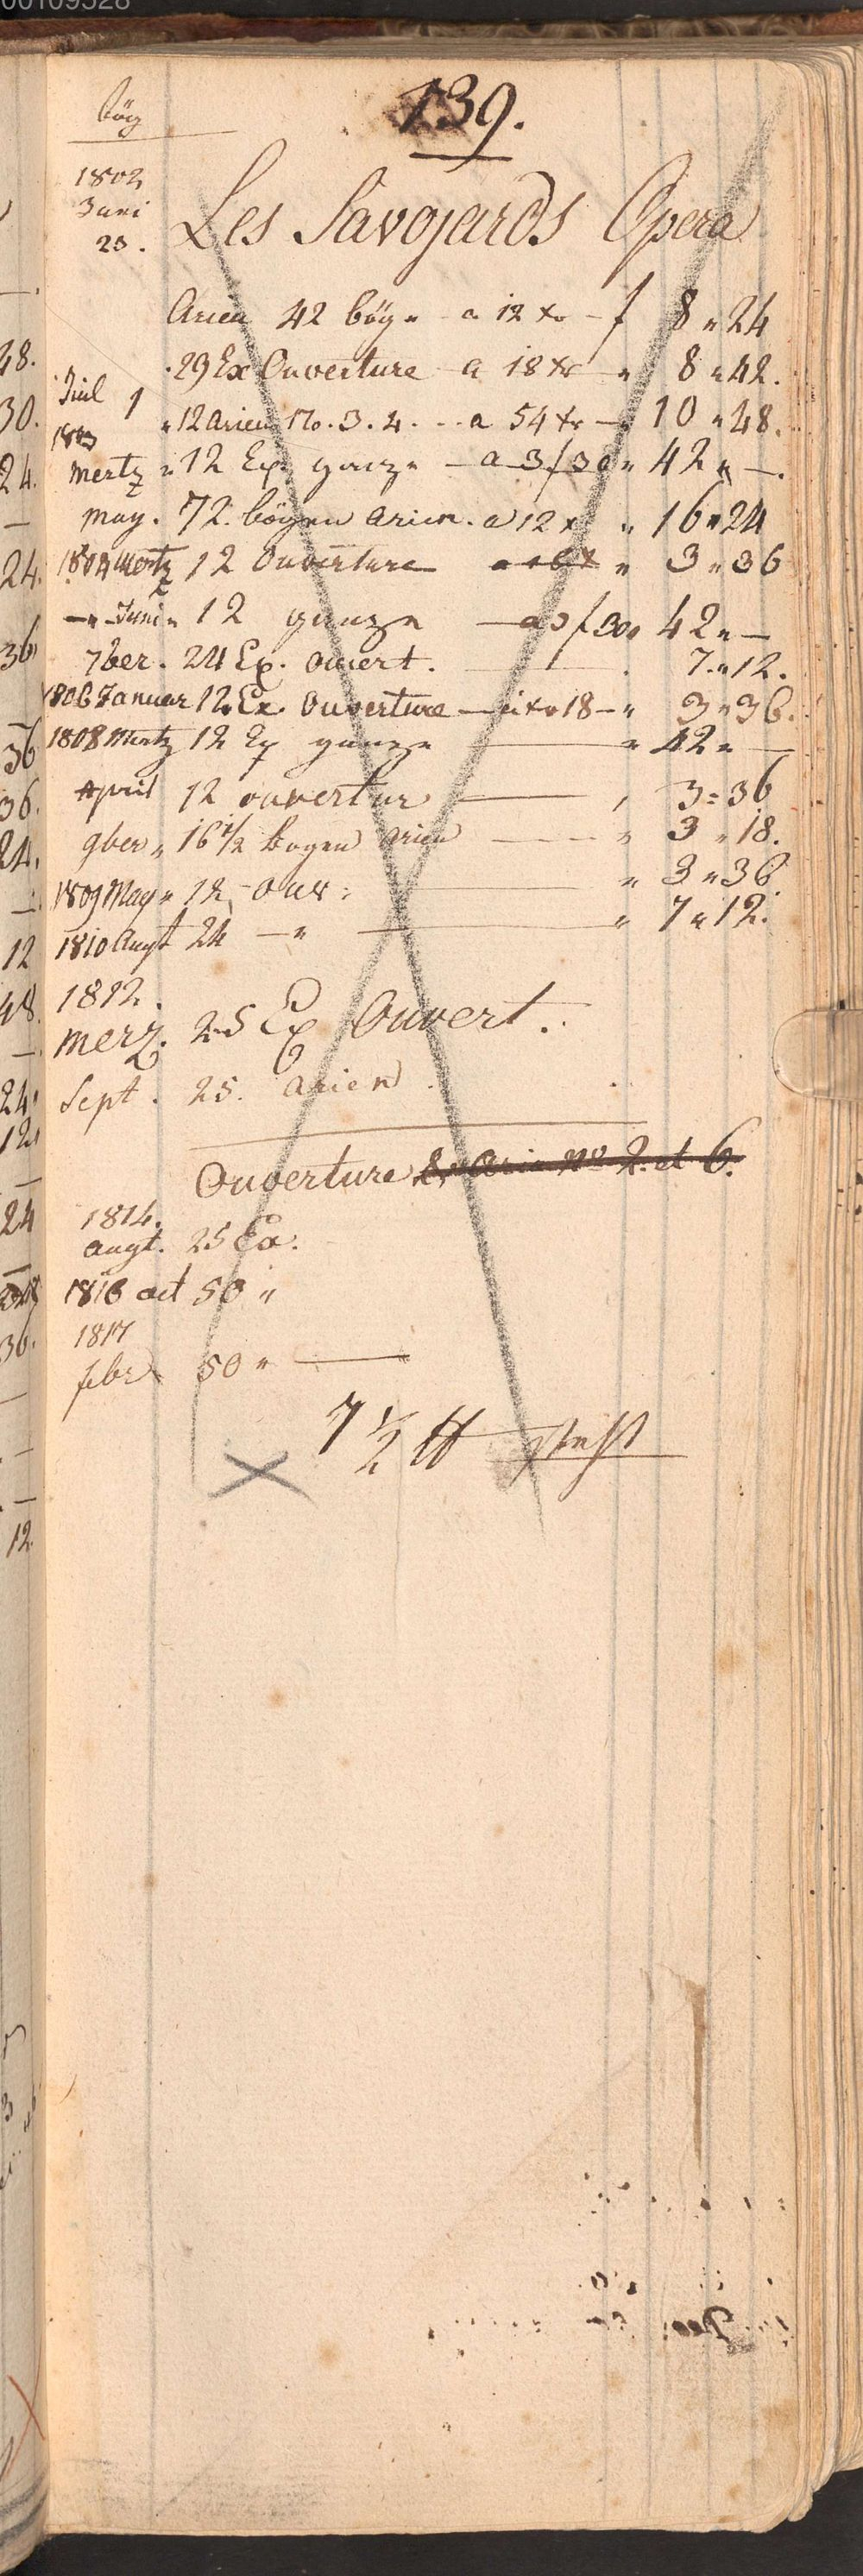 00109528
139.
bög
1802
Juni
23.
Les Savojards Opera
Arien 42 bög „ a 12 xr – f 8 „ 24
29 Ex Ouverture a 18 xr „ 8 „ 42.
Jul 1 „ 12 arien No. 3. 4. - - a 54 xr – 10 „ 48.
1803
mertz „ 12 Ex ganze – a 3 f 30 „ 42 „ —.
may. 72. bögen arien. a 12 x „ 16 „ 24
1804 Mertz 12 Ouverture a 18 x „ 3 „ 36
— „ Juni „ 12 ganze — a 3 f 30 „ 42 „ —
7ber. 24 Ex. ouvert. — 7 „ 12.
1806 Januar 12 Ex. Ouverture — a xr 18 – „ 3 „ 36.
1808 Mertz 12 Ex ganze — „ 42 „ —
April 12 ouvertur — , 3 = 36
9ber „ 16 1/2 bogen arien — „ 3 „ 18.
1809 May „ 12 – ouv : „ 3 „ 36
1810 Augt 24 — „ — „ 7 „ 12.
1812.
merz. 25 Ex Ouvert.
Sept. 25. arien
Ouverture & Arie No 2. et 6.
1814.
augt. 25 Ex.
1816 oct 50 „
1817
febr 50 „ —
7 1/2 ℔